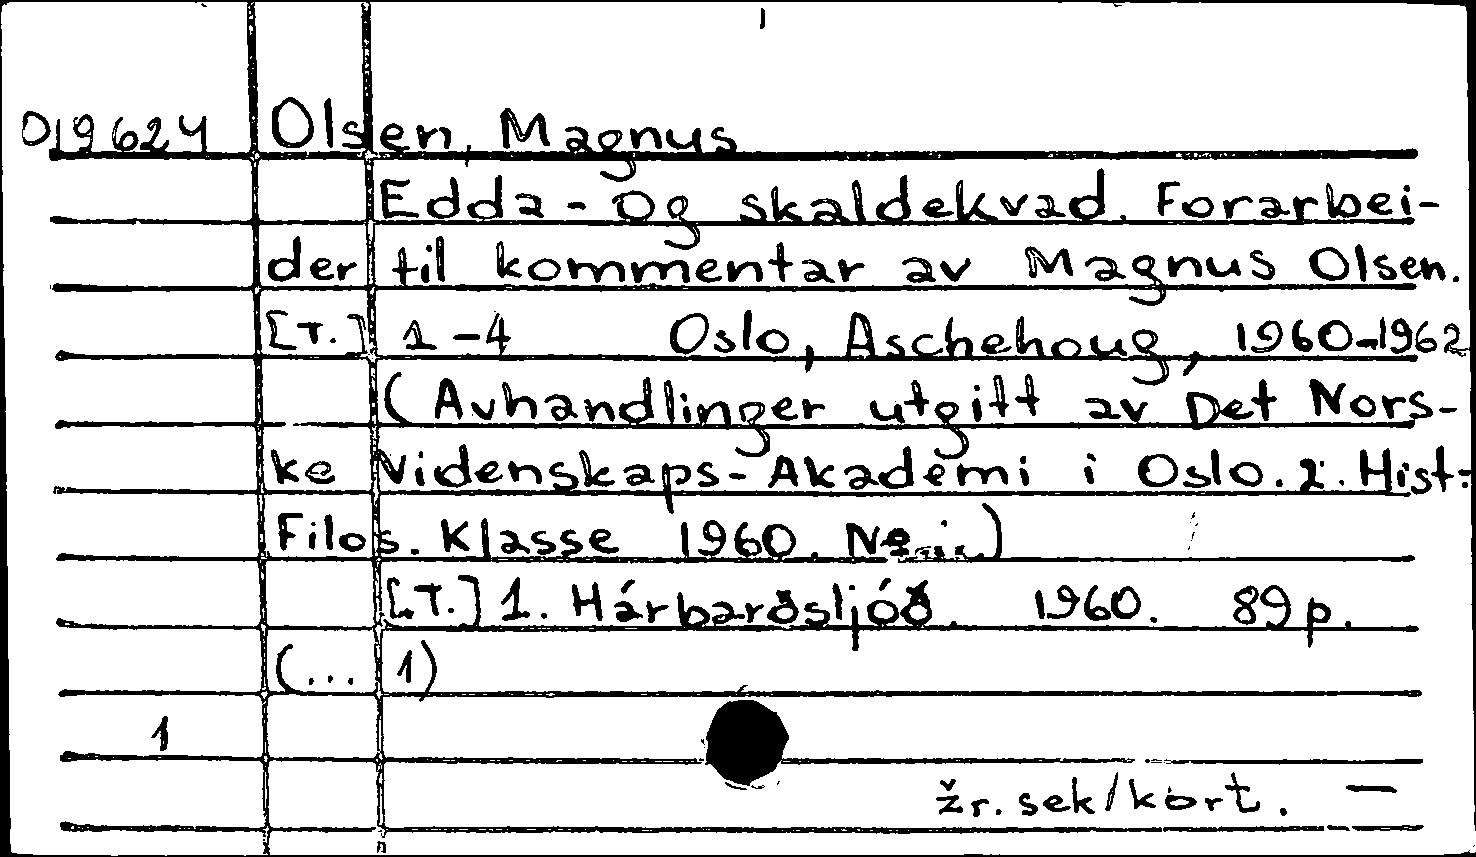 D19624 Olsen, Magnus
Edda- og skaldekvad. Forarbei-
der til kommentar av Magnus Olsen.
[T.] 1-4 Oslo, Aschehoug, 1960-1962
(Avhandlinger utgitt av Det Nors-
ke Videnskaps-Akademi i Oslo. 2. Hist:
Filos. Klasse 1960. No...)
[T.] 1. Hárbarðsljóð. 1960. 89 p.
(... 1)
1
žr. sek/kort. —